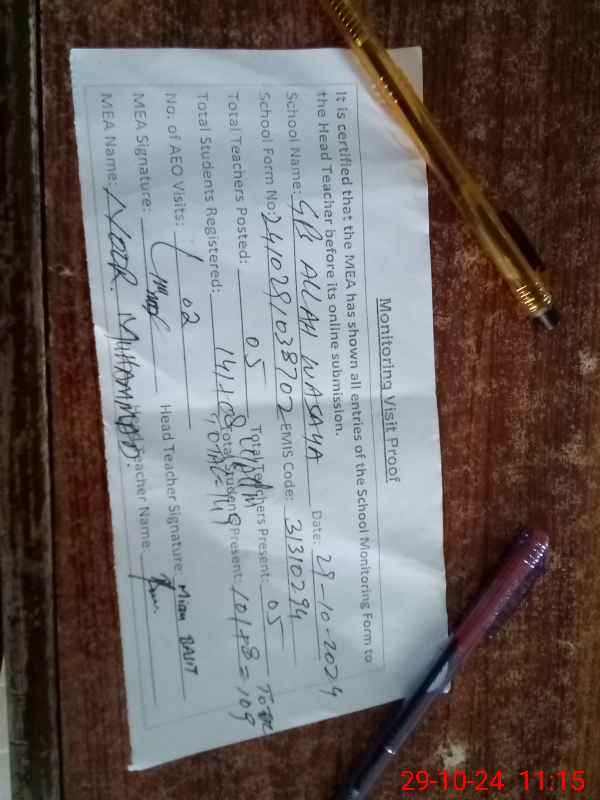 Monitoring Visit Proof
It is certified that the MEA has shown all entries of the School Monitoring Form to
the Head Teacher before its online submission.
School Name: GPS ALLAH WASAYA Date: 29-10-2024
School Form No: 2410291038702 EMIS Code: 31310294
Total Teachers Posted: 05 Total Teachers Present: 05
Total Students Registered: 141+08 Total=149 Total Students Present: 101+8=109 Total
No. of AEO Visits: 02
MEA Signature: Head Teacher Signature:
MEA Name: MUHAMMAD. Teacher Name:
29-10-24 11:15